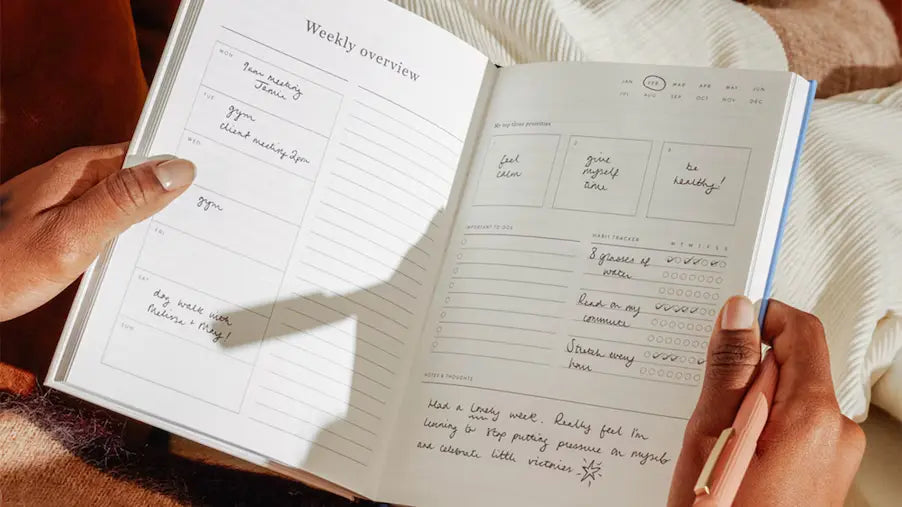 Weekly overview
MON
9am meeting
Jamie
TUE
gym
client meeting 2pm
WED
gym
FRI
SAT
dog walk with
Melissa + May!
SUN
JAN FEB MAR APR MAY JUN
JUL AUG SEP OCT NOV DEC
My top three priorities
1 2 3
feel
calm
give
myself
time
be
healthy!
IMPORTANT TO-DOS
HABIT TRACKER M T W T F S S
8 glasses of
water
Read on my
commute
Stretch every
hour
NOTES & THOUGHTS
Had a lonely week. Really feel I'm
learning to stop putting pressure on myself
and celebrate little victories.